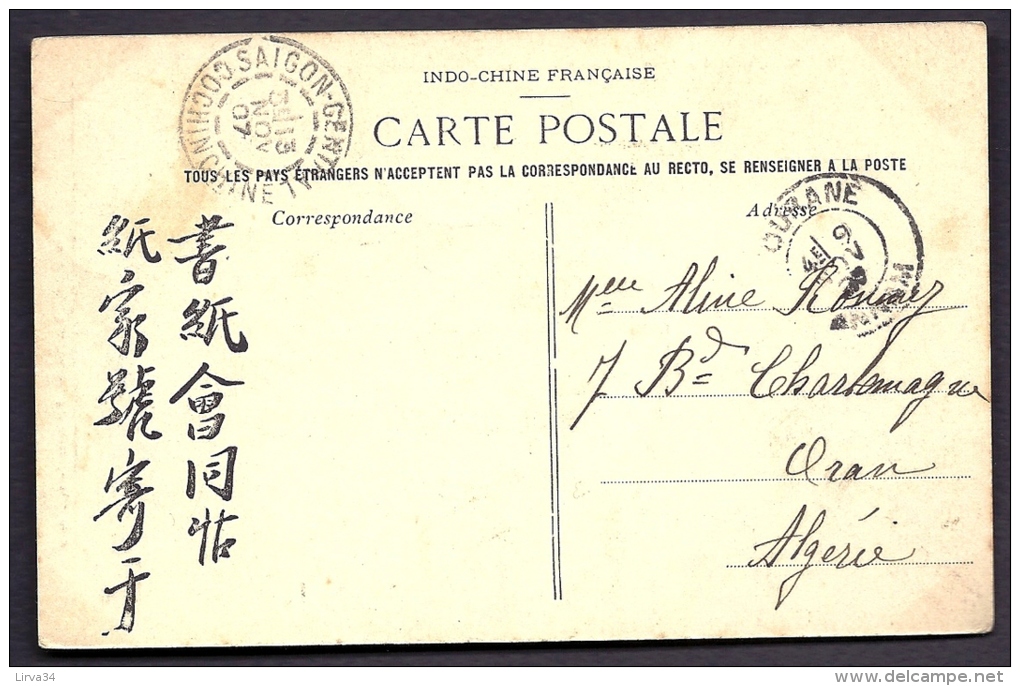 INDO-CHINE FRANÇAISE
CARTE POSTALE
TOUS LES PAYS ÉTRANGERS N'ACCEPTENT PAS LA CORRESPONDANCE AU RECTO, SE RENSEIGNER A LA POSTE
SAIGON-CENTRAL
COCHINCHINE
13
NOV
07
Correspondance
Adresse
TOURANE
9
ANNAM
書紙會同帖
紙家號寄于
Melle Aline
7 Bd Charlemagne
Oran
Algérie
Lirva34
delcampe.net